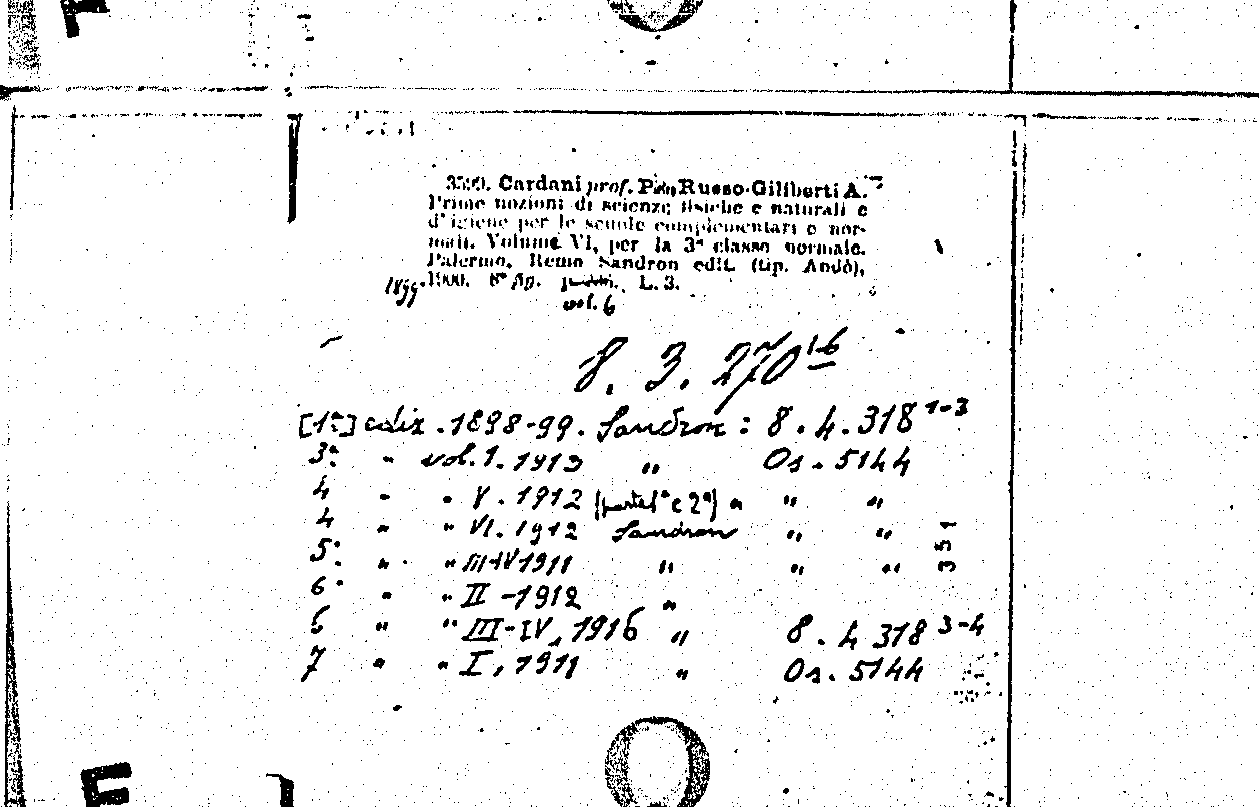 Cardani prof. P., Russo-Giliberti A.
Prime nozioni di scienze fisiche e naturali e
d'igiene per le scuole complementari e nor-
mali. Volume VI, per la 3ª classe normale.
Palermo, Remo Sandron edit. (tip. Andò),
1899. 1900. 8° fig. L. 3.
vol. 6
8. 3. 270 1-6
[1ª] ediz. 1898-99. Sandron: 8. 4. 318 1-3
3ª " vol. 1. 1913 " Os. 5144
4 " " V. 1912 (parte 1ª e 2ª) " " "
4 " " VI. 1912 Sandron " "
5ª " " III-IV 1911 " " "
351
6ª " " II - 1912 "
6 " " III-IV, 1916 " 8. 4 318 3-4
7 " " I, 1911 " Os. 5144